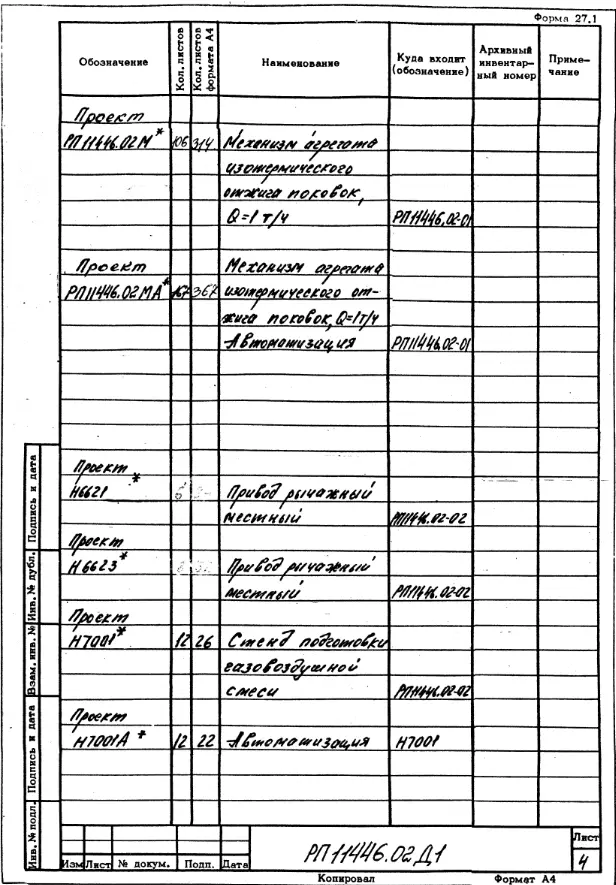 Форма 27.1
Обозначение Кол. листов Кол. листов формата А4 Наименование Куда входит (обозначение) Архивный инвентарный номер Примечание
Проект
РП 11446.02М* 106 314 Механизм агрегата
изотермического
отжига поковок,
Q=1 т/ч РП11446.02-01
Проект Механизм агрегата
РП11446.02МА* 167 367 изотермического от-
жига поковок, Q=1т/ч
Автоматизация РП11446.02-01
Проект
Н6621* Привод рычажный
местный РП11446.02-02
Проект
Н6623* Привод рычажный
местный РП11446.02-02
Проект
Н7001* 12 26 Стенд подготовки
газовоздушной
смеси РП11446.02-02
Проект
Н7001А* 12 22 Автоматизация Н7001
Инв. № подл. Подпись и дата Взам. инв. № Инв. № дубл. Подпись и дата
РП 11446.02Д1
Лист
4
Изм Лист № докум. Подп. Дата
Копировал Формат А4